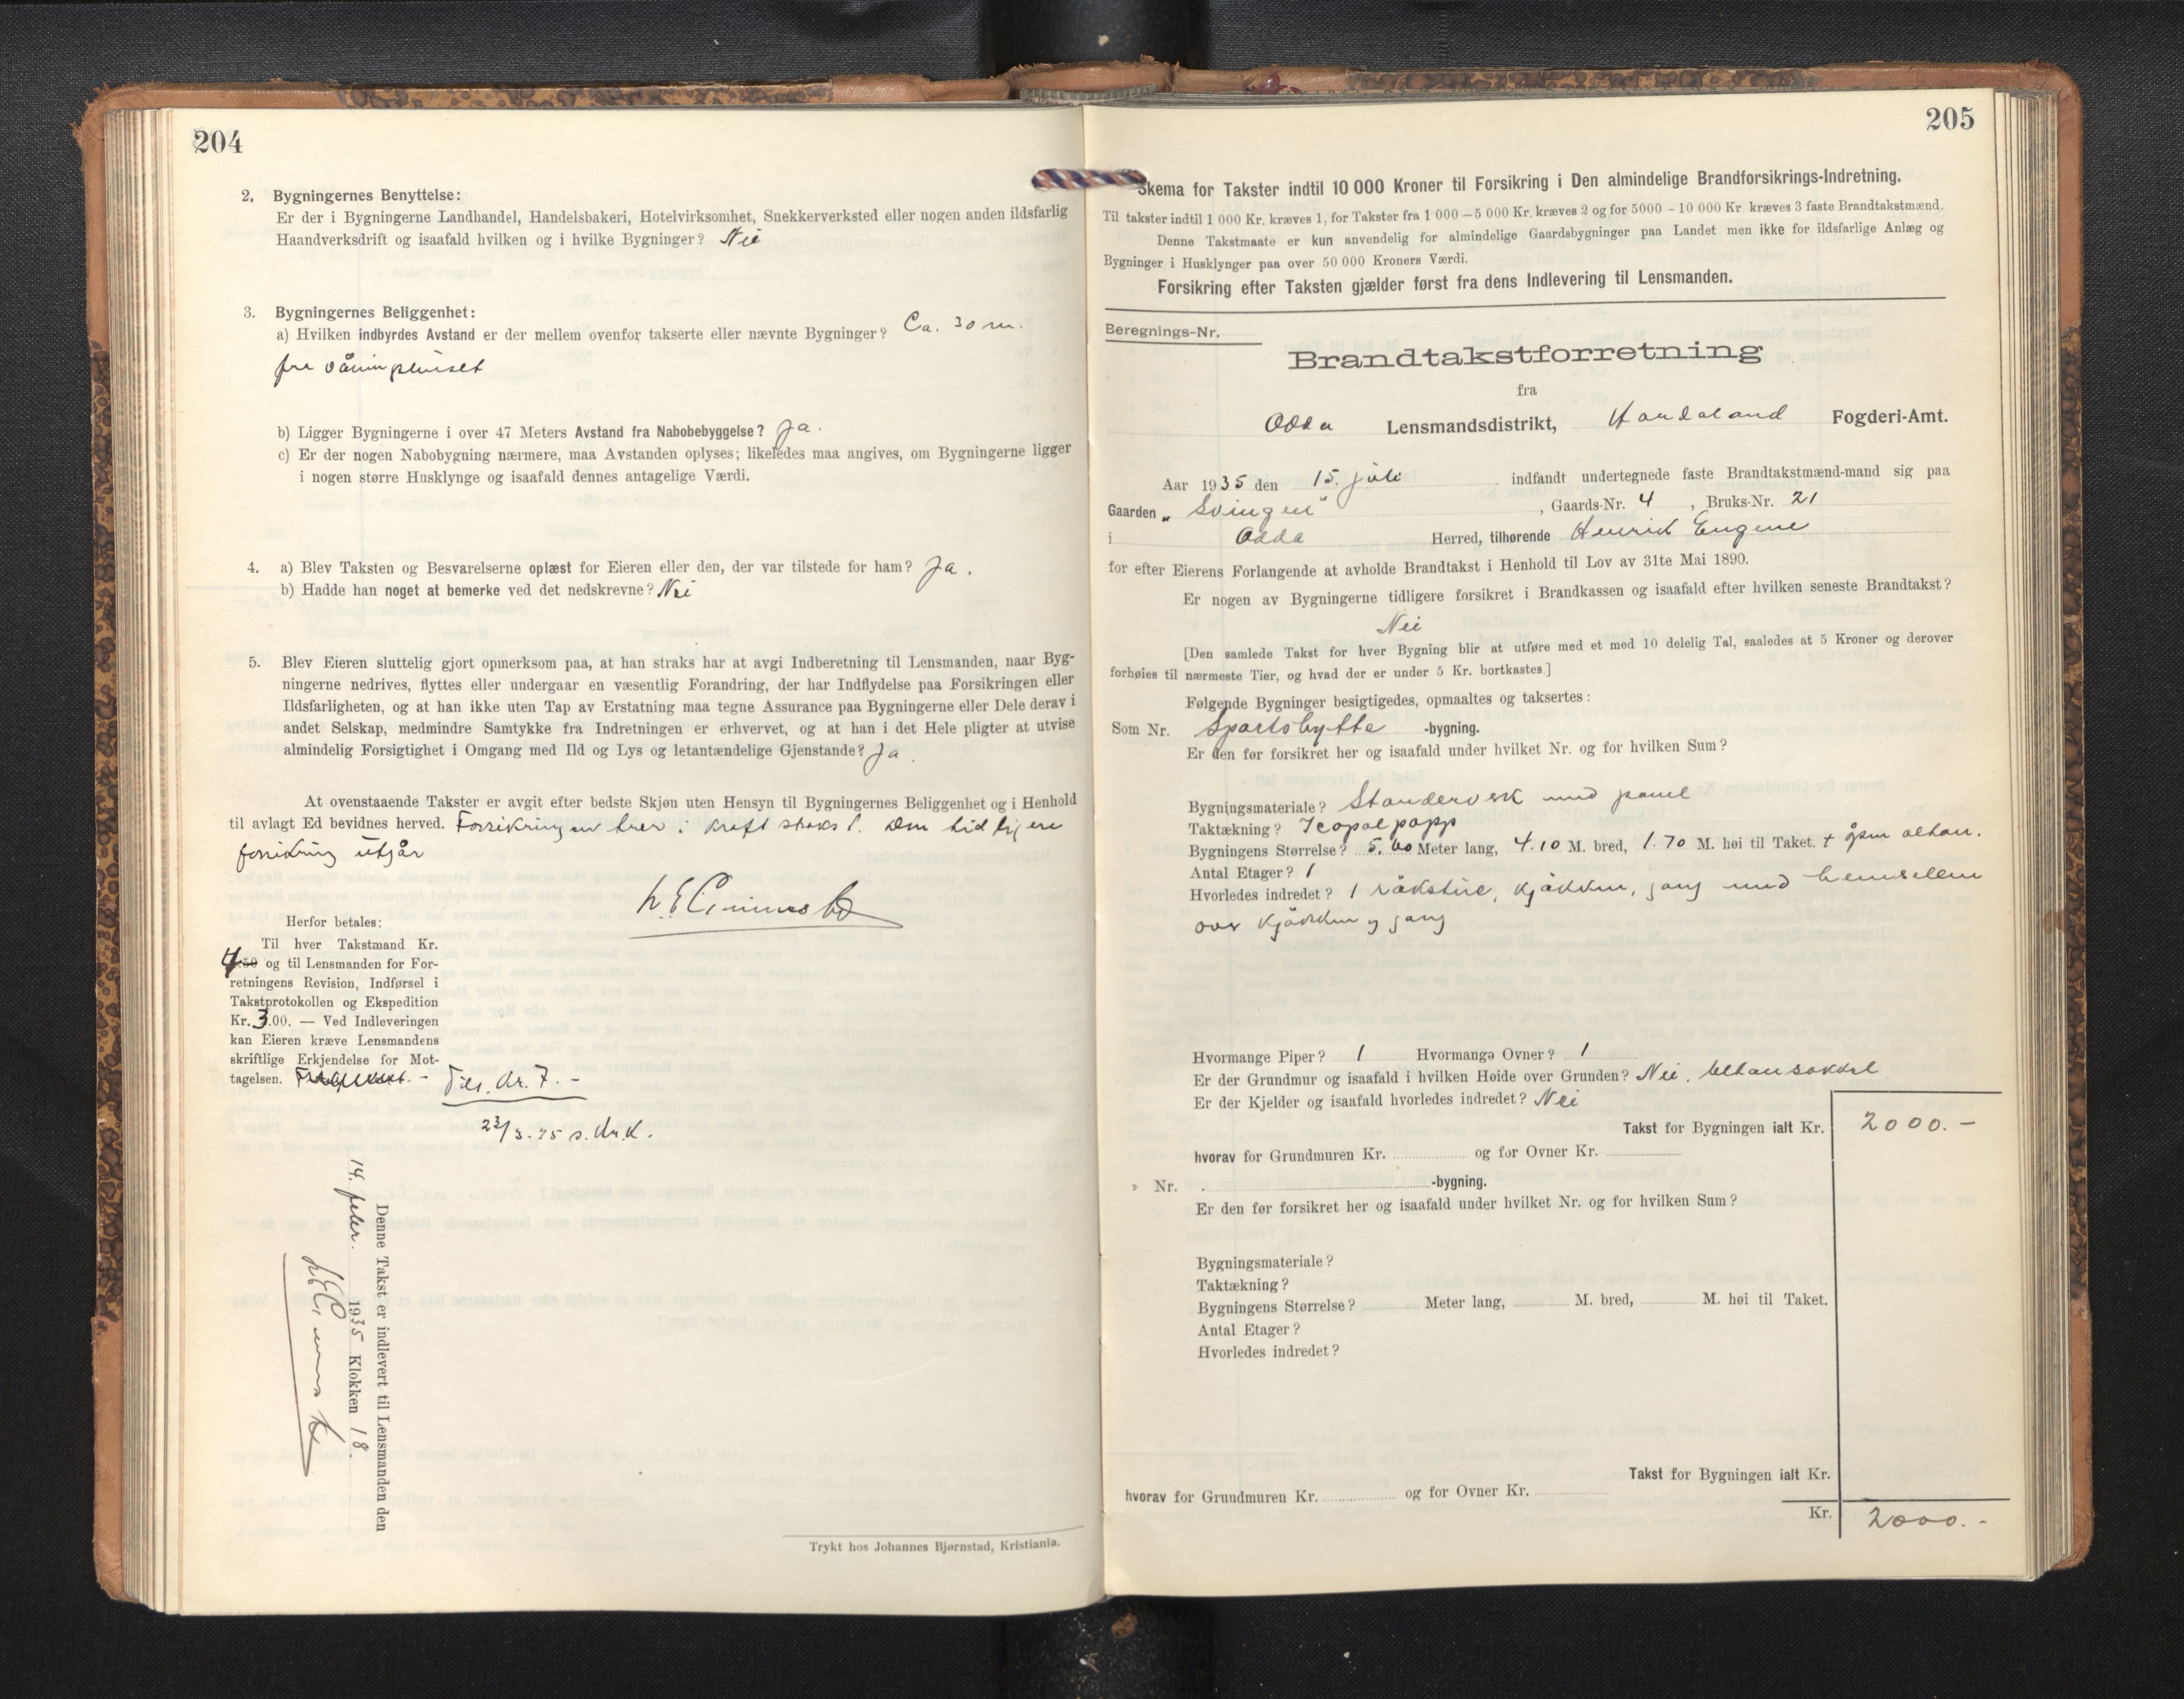 204
2. Bygningernes Benyttelse:
Er der i Bygningerne Landhandel, Handelsbakeri, Hotelvirksomhet, Snekkerverksted eller nogen anden ildsfarlig
Haandverksdrift og isaafald hvilken og i hvilke Bygninger? Nei
3. Bygningernes Beliggenhet:
a) Hvilken indbyrdes Avstand er der mellem ovenfor takserte eller nævnte Bygninger? Ca. 30 m.
fra våningshuset
b) Ligger Bygningerne i over 47 Meters Avstand fra Nabobebyggelse? Ja.
c) Er der nogen Nabobygning nærmere, maa Avstanden oplyses; likeledes maa angives, om Bygningerne ligger
i nogen større Husklynge og isaafald dennes antagelige Værdi.
4. a) Blev Taksten og Besvarelserne oplæst for Eieren eller den, der var tilstede for ham? Ja.
b) Hadde han noget at bemerke ved det nedskrevne? Nei
5. Blev Eieren sluttelig gjort opmerksom paa, at han straks har at avgi Indberetning til Lensmanden, naar Byg-
ningerne nedrives, flyttes eller undergaar en væsentlig Forandring, der har Indflydelse paa Forsikringen eller
Ildsfarligheten, og at han ikke uten Tap av Erstatning maa tegne Assurance paa Bygningerne eller Dele derav i
andet Selskap, medmindre Samtykke fra Indretningen er erhvervet, og at han i det Hele pligter at utvise
almindelig Forsigtighet i Omgang med Ild og Lys og letantændelige Gjenstande? Ja.
At ovenstaaende Takster er avgit efter bedste Skjøn uten Hensyn til Bygningernes Beliggenhet og i Henhold
til avlagt Ed bevidnes herved. Forsikringen trer i kraft straks. Den tidligere
forsikring utgår
Herfor betales:
Til hver Takstmand Kr.
4.50 og til Lensmanden for For-
retningens Revision, Indførsel i
Takstprotokollen og Ekspedition
Kr. 3.00. — Ved Indleveringen
kan Eieren kræve Lensmandens
skriftlige Erkjendelse for Mot-
tagelsen. Tils. kr. 7.-
Denne Takst er indlevert til Lensmanden den
14. febr. 1935 Klokken 18.
Trykt hos Johannes Bjørnstad, Kristiania.
205
Skema for Takster indtil 10 000 Kroner til Forsikring i Den almindelige Brandforsikrings-Indretning.
Til takster indtil 1 000 Kr. kræves 1, for Takster fra 1 000 — 5 000 Kr. kræves 2 og for 5000 - 10 000 Kr. kræves 3 faste Brandtakstmænd.
Denne Takstmaate er kun anvendelig for almindelige Gaardsbygninger paa Landet men ikke for ildsfarlige Anlæg og
Bygninger i Husklynger paa over 50 000 Kroners Værdi.
Forsikring efter Taksten gjælder først fra dens Indlevering til Lensmanden.
Beregnings-Nr.
Brandtakstforretning
fra
Odda Lensmandsdistrikt, Hordaland Fogderi-Amt.
Aar 1935 den 15. juli indfandt undertegnede faste Brandtakstmænd-mand sig paa
Gaarden „Svingen“, Gaards-Nr. 4, Bruks-Nr. 21
i Odda Herred, tilhørende Henrik Eugene
for efter Eierens Forlangende at avholde Brandtakst i Henhold til Lov av 31te Mai 1890.
Er nogen av Bygningerne tidligere forsikret i Brandkassen og isaafald efter hvilken seneste Brandtakst?
Nei
[Den samlede Takst for hver Bygning blir at utføre med et med 10 delelig Tal, saaledes at 5 Kroner og derover
forhøies til nærmeste Tier, og hvad der er under 5 Kr. bortkastes.]
Følgende Bygninger besigtigedes, opmaaltes og taksertes:
Som Nr. Sportshytte -bygning.
Er den før forsikret her og isaafald under hvilket Nr. og for hvilken Sum?
Bygningsmateriale? Standerverk med panel
Taktækning? Icopalpapp
Bygningens Størrelse? 5.60 Meter lang, 4.10 M. bred, 1.70 M. høi til Taket. + åpen altan.
Antal Etager? 1
Hvorledes indredet? 1 røkstue, kjøkken, gang med hemsellem
over kjøkken og gang
Hvormange Piper? 1 Hvormange Ovner? 1
Er der Grundmur og isaafald i hvilken Høide over Grunden? Nei.
Er der Kjelder og isaafald hvorledes indredet? Nei
Takst for Bygningen ialt Kr. 2000.-
hvorav for Grundmuren Kr. og for Ovner Kr.
» Nr. -bygning.
Er den før forsikret her og isaafald under hvilket Nr. og for hvilken Sum?
Bygningsmateriale?
Taktækning?
Bygningens Størrelse? Meter lang, M. bred, M. høi til Taket.
Antal Etager?
Hvorledes indredet?
Takst for Bygningen ialt Kr.
hvorav for Grundmuren Kr. og for Ovner Kr.
Kr. 2000.-